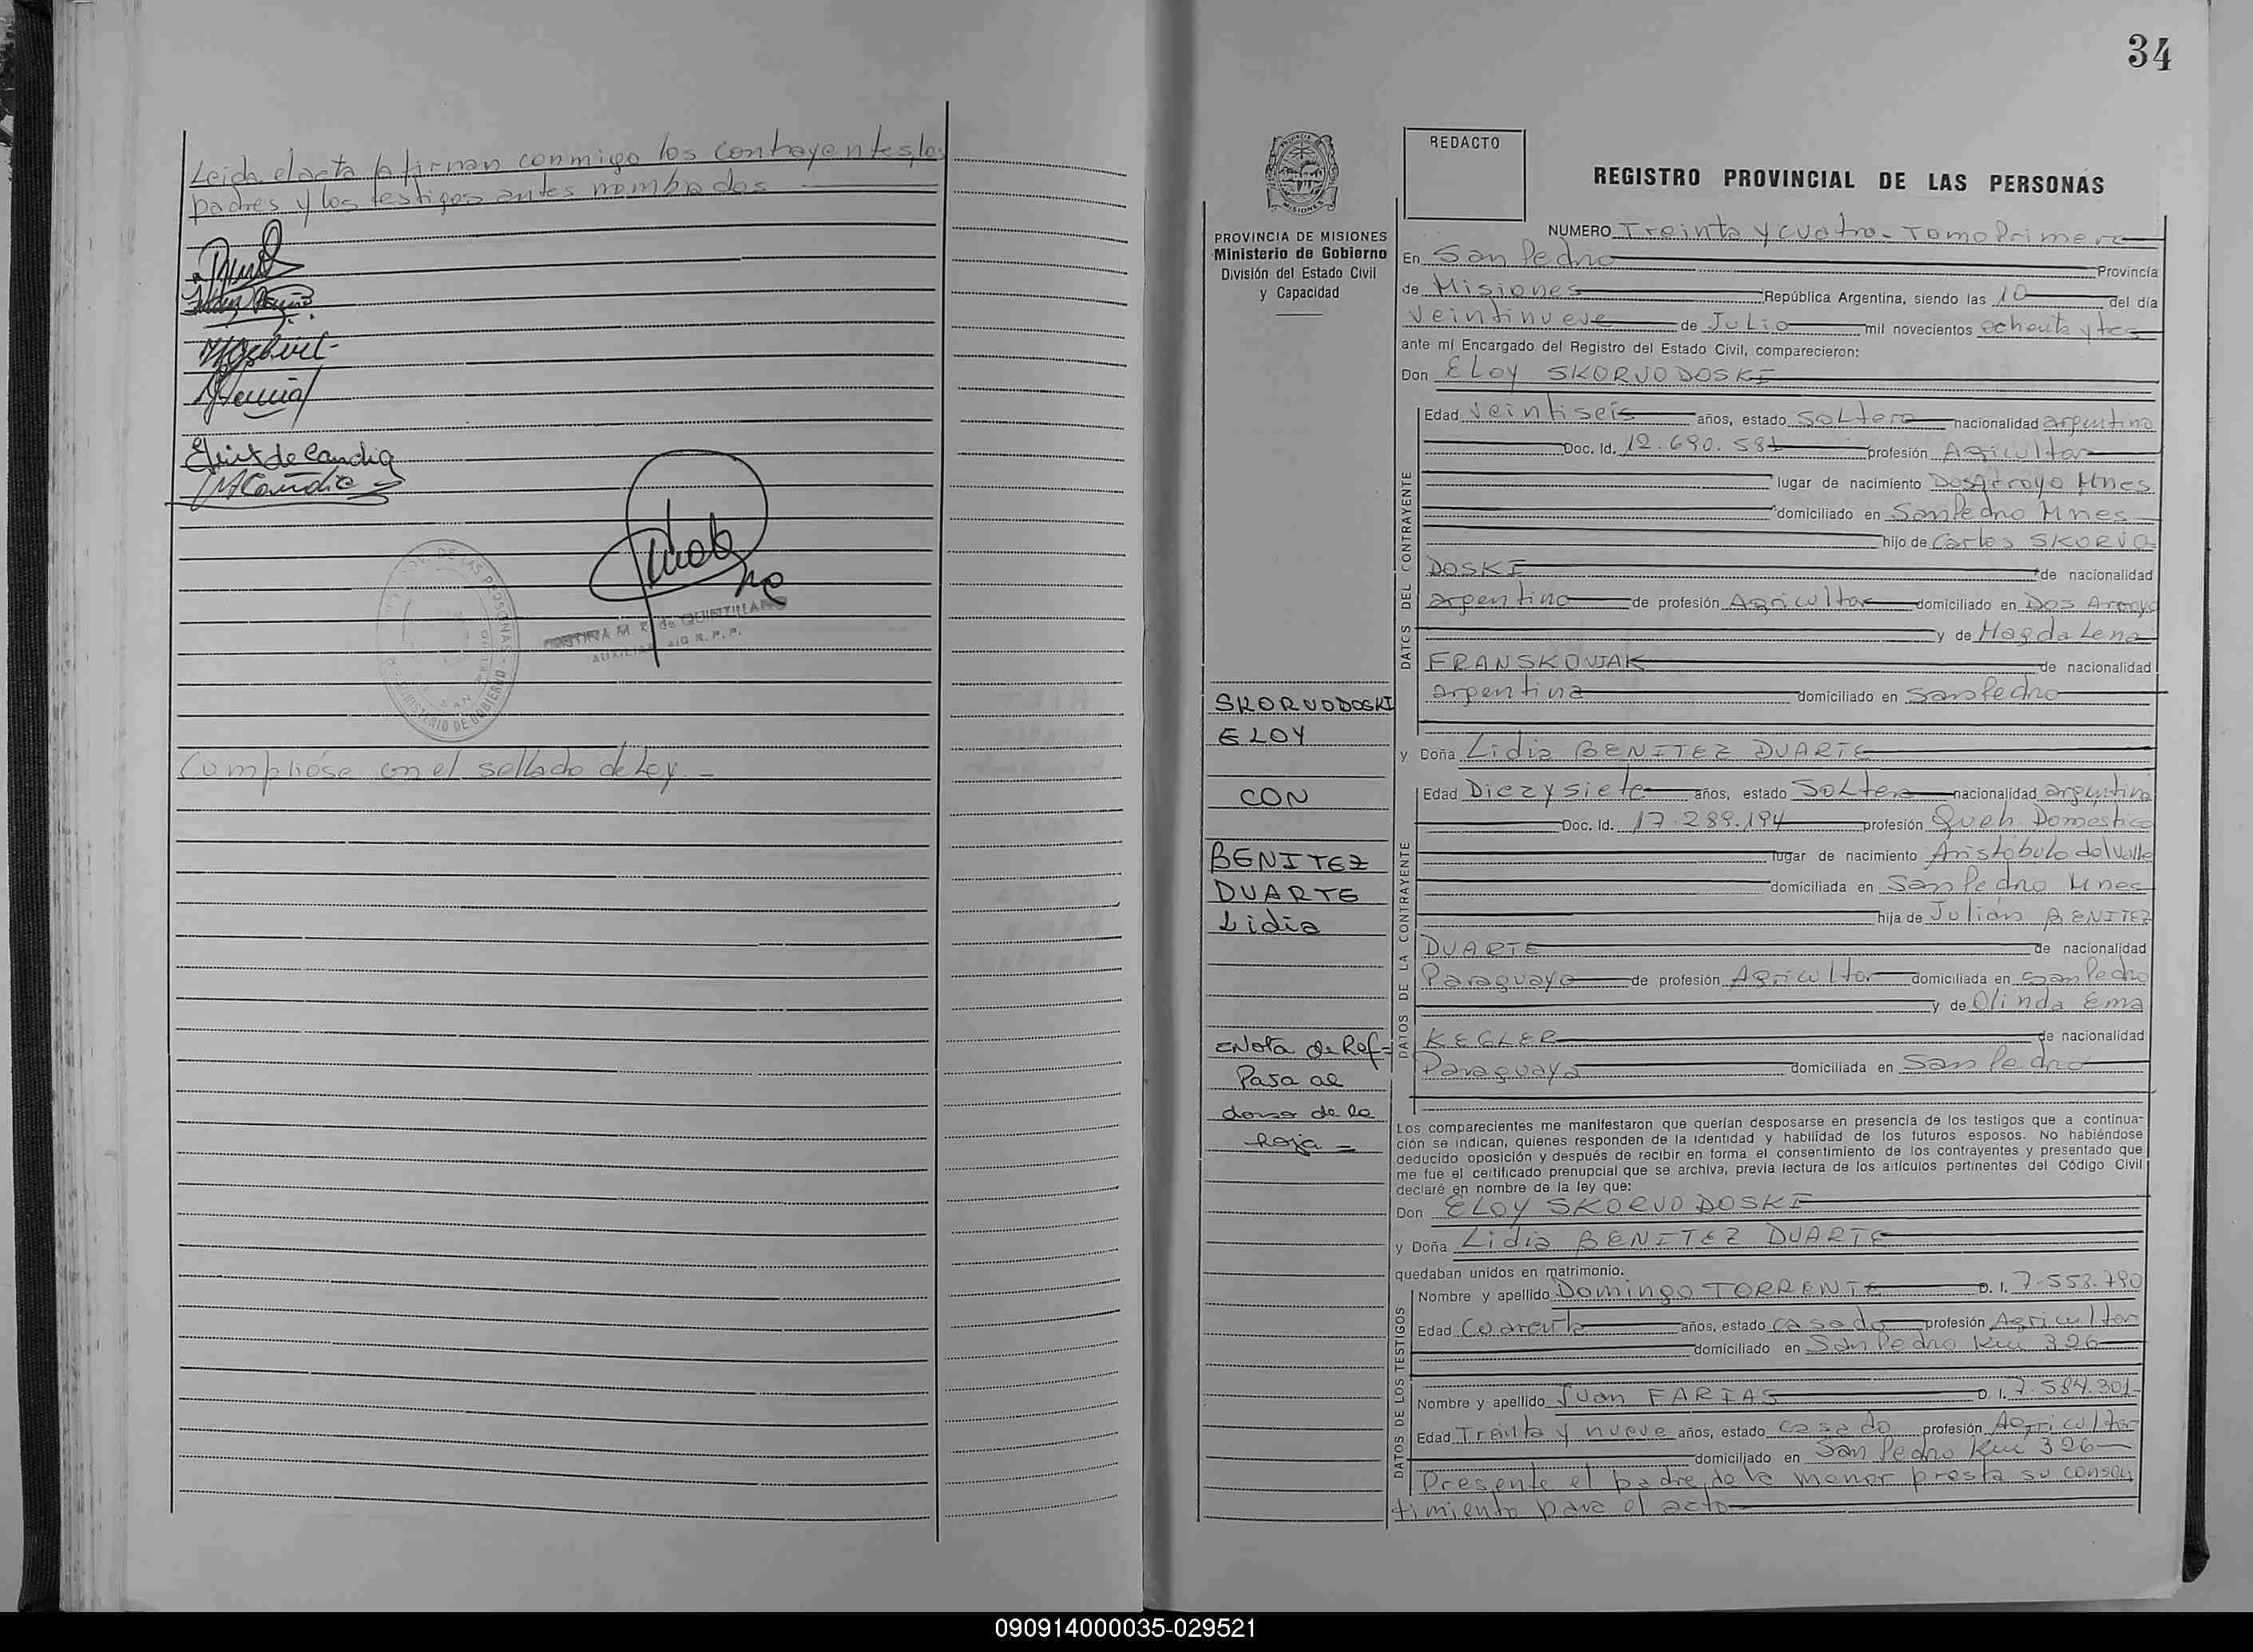 Leida el acta la firman conmigo los contrayentes, los
padres y los testigos antes nombrados
E. de Candia
Cumplióse con el sellado de Ley.-
34
REDACTO
REGISTRO PROVINCIAL DE LAS PERSONAS
PROVINCIA DE MISIONES
Ministerio de Gobierno
División del Estado Civil
y Capacidad
NUMERO Treinta y cuatro - Tomo Primero
En San Pedro Provincia
de Misiones República Argentina, siendo las 10 del día
Veintinueve de Julio mil novecientos ochenta y tres
ante mí Encargado del Registro del Estado Civil, comparecieron:
Don ELOY SKORVODOSKI
DATOS DEL CONTRAYENTE
Edad Veintiseis años, estado Soltero nacionalidad argentino
Doc. Id. 12.690.581 profesión Agricultor
lugar de nacimiento Dos Arroyo Mnes
domiciliado en San Pedro Mnes
hijo de Carlos SKORVO
DOSKI de nacionalidad
argentino de profesión Agricultor domiciliado en Dos Arroyo
y de Magdalena
FRANSKOVIAK de nacionalidad
argentina domiciliado en San Pedro
SKORVODOSKI
ELOY
CON
BENITEZ
DUARTE
Lidia
y Doña Lidia BENITEZ DUARTE
DATOS DE LA CONTRAYENTE
Edad Diez y siete años, estado Soltera nacionalidad argentina
Doc. Id. 17.289.194 profesión Queh. Domestico
lugar de nacimiento Aristóbulo del Valle
domiciliada en San Pedro Mnes
hija de Julián BENITEZ
DUARTE de nacionalidad
Paraguayo de profesión Agricultor domiciliada en San Pedro
y de Olinda Ema
KEGLER de nacionalidad
Paraguaya domiciliada en San Pedro
Nota de Ref=
Pasa al
dorso de la
hoja =
Los comparecientes me manifestaron que querían desposarse en presencia de los testigos que a continua-
ción se indican, quienes responden de la identidad y habilidad de los futuros esposos. No habiéndose
deducido oposición y después de recibir en forma el consentimiento de los contrayentes y presentado que
me fue el certificado prenupcial que se archiva, previa lectura de los artículos pertinentes del Código Civil
declaré en nombre de la ley que:
Don ELOY SKORVODOSKI
y Doña Lidia BENITEZ DUARTE
quedaban unidos en matrimonio.
DATOS DE LOS TESTIGOS
Nombre y apellido Domingo TORRENTE D. I. 7.553.790
Edad Cuarenta años, estado casado profesión Agricultor
domiciliado en San Pedro Km 326
Nombre y apellido Juan FARIAS D. I. 7.584.301
Edad Treinta y nueve años, estado casado profesión Agricultor
domiciliado en San Pedro Km 326
Presente el padre de la menor presta su consen
timiento para el acto
090914000035-029521